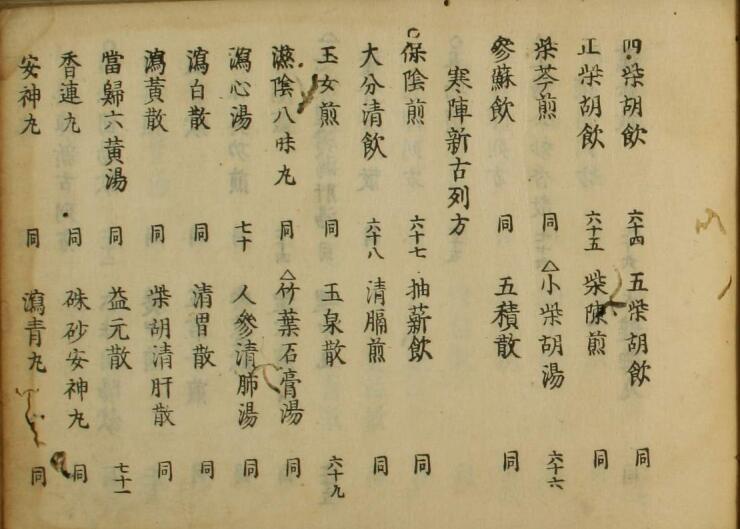 四柴胡飲 六十四 五柴胡飲 同
正柴胡飲 六十五 柴陳煎 同
柴芩煎 同 △小柴胡湯 六十六
參蘇飲 同 五積散 同
寒陣新古列方
○保陰煎 六十七 抽薪飲 同
大分清飲 六十八 清膈煎 同
玉女煎 同 玉泉散 六十九
滋陰八味丸 同 △竹葉石膏湯 同
瀉心湯 七十 人參清肺湯 同
瀉白散 同 清胃散 同
瀉黃散 同 柴胡清肝散 同
當歸六黃湯 同 益元散 七十一
香連丸 同 硃砂安神丸 同
安神丸 同 瀉青丸 同